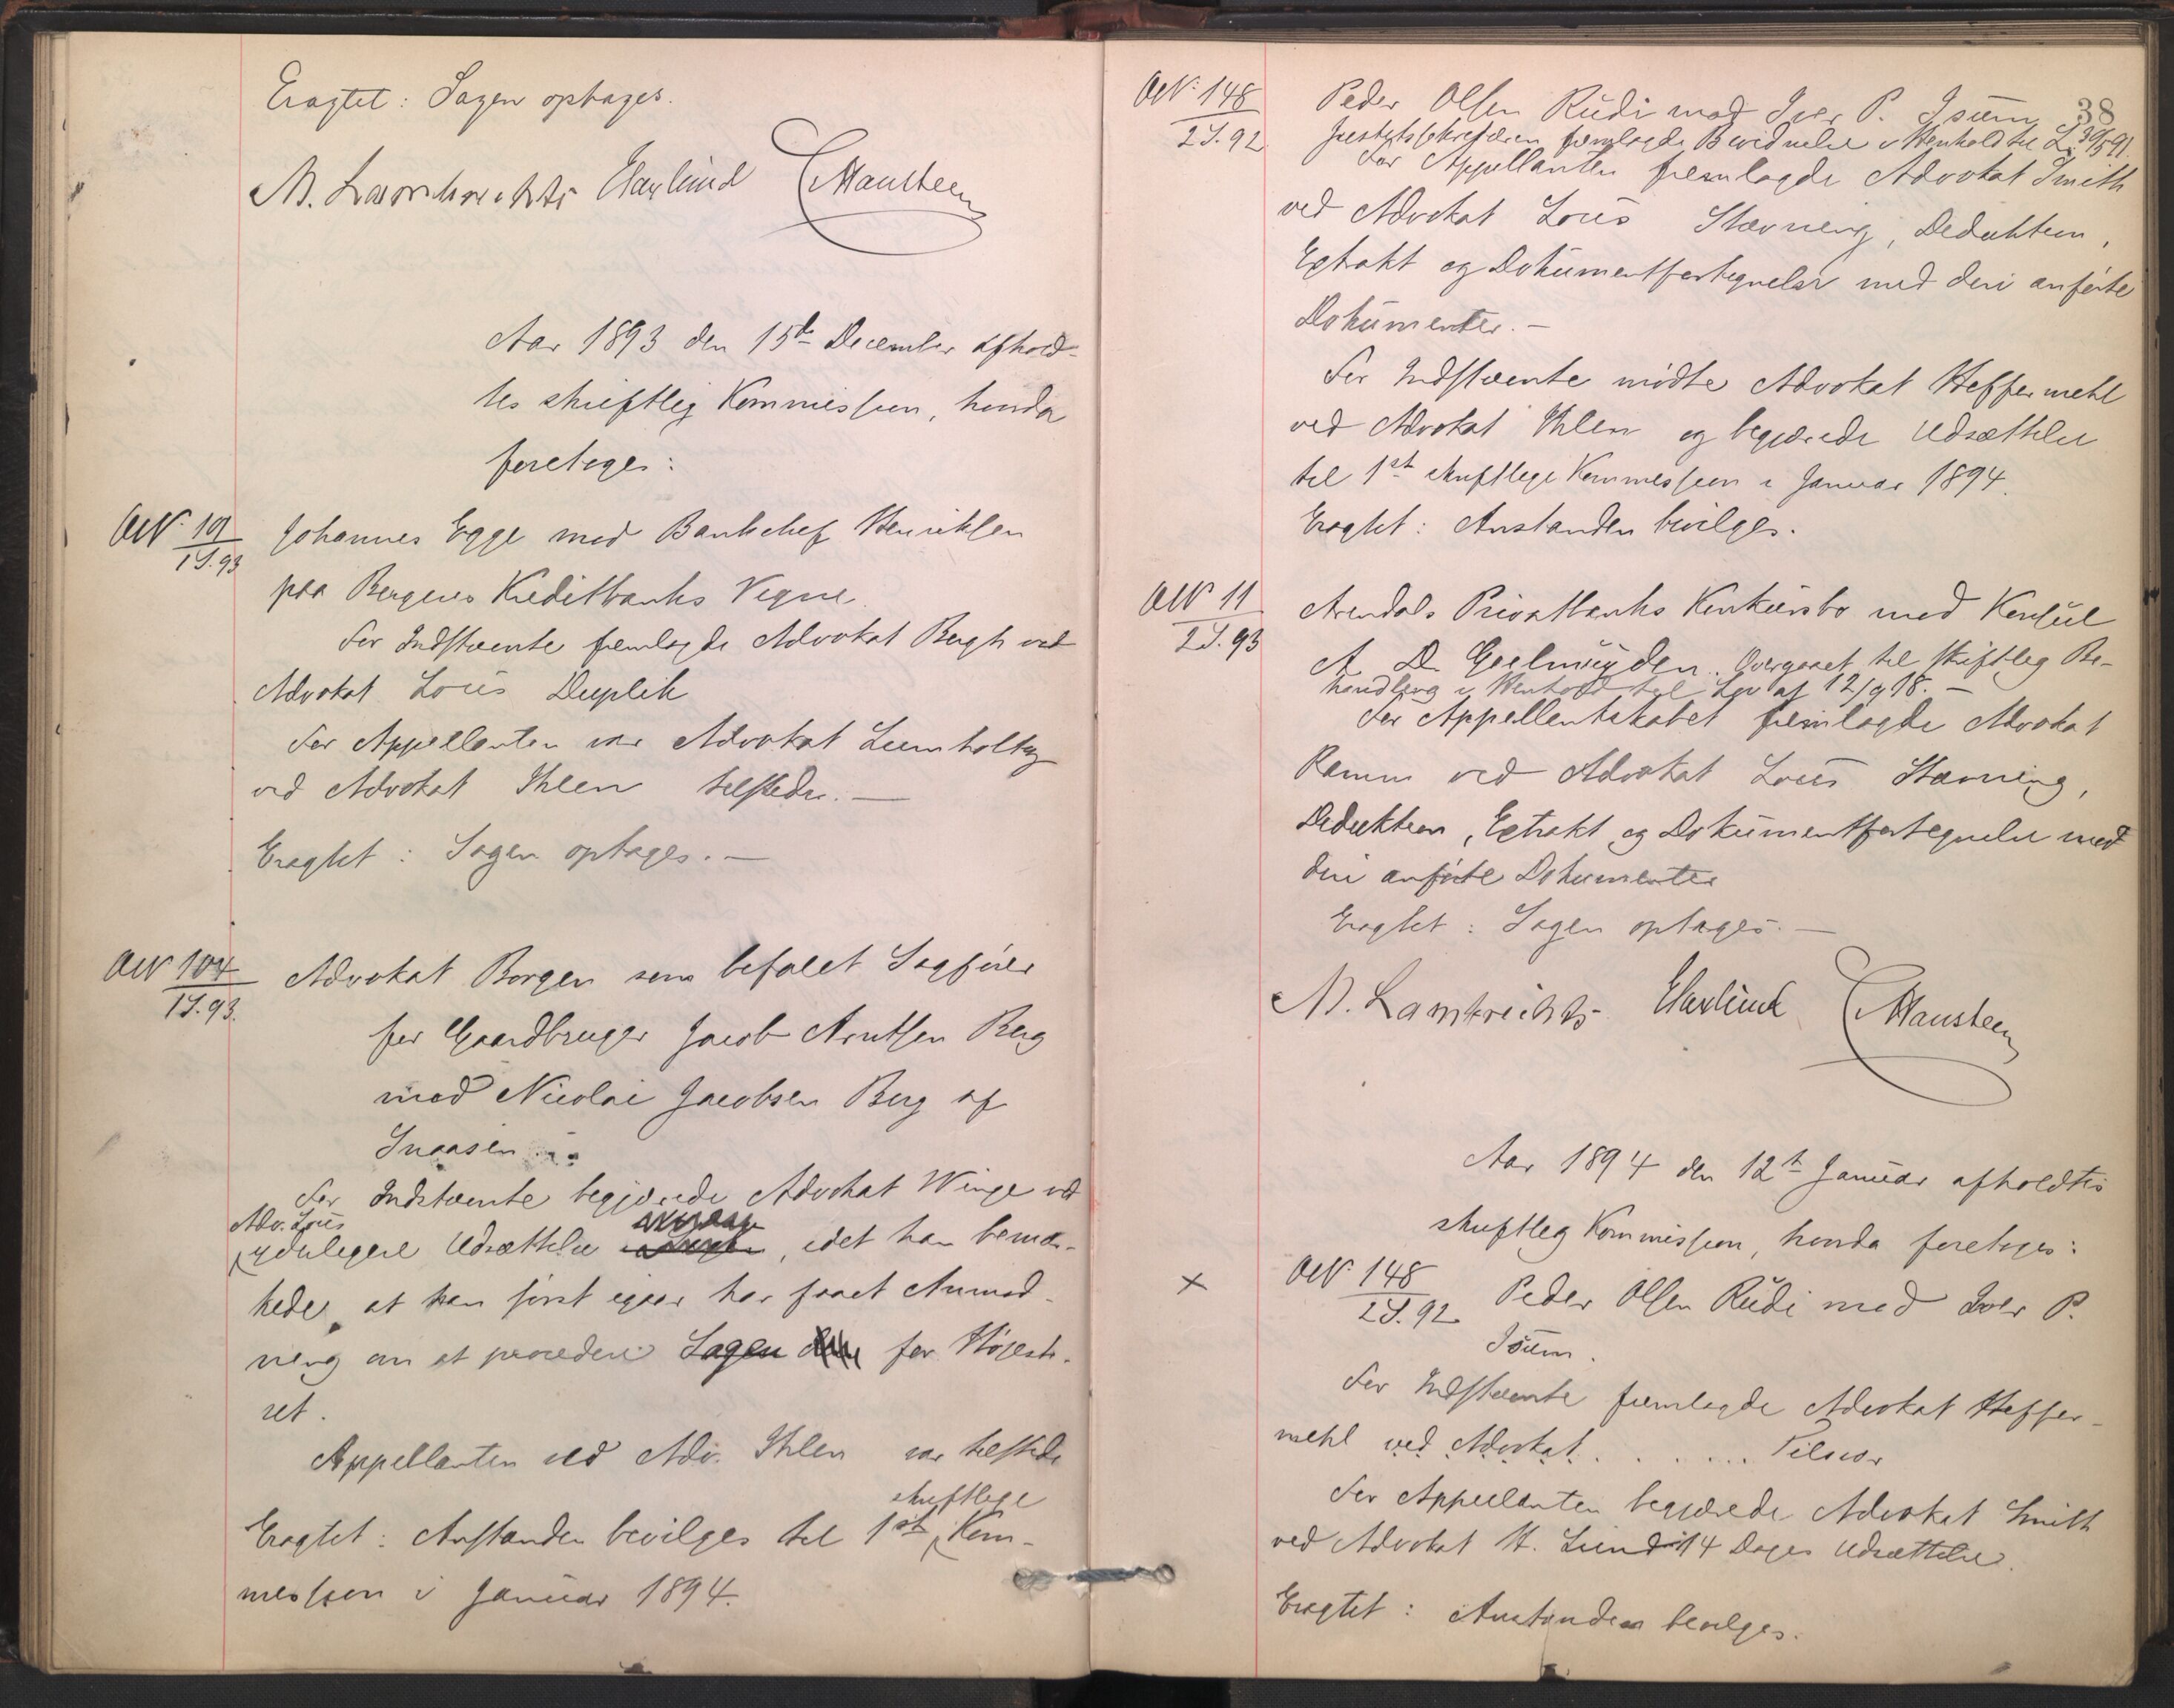 Eragtet: Sagen optages.
M. Lambrechts Harlind E Hansteen
Aar 1893 den 15de December afhold-
tes skriftlig Kommission, hvorda
foretoges:
LNr 101
1 S. 93
Johannes Egge mod Bankchef Henriksen
paa Bergens Kreditbanks Vegne
For Indstævnte fremlagde Advokat Bergh ved
Advokat Lous Duplik
For Appellanten var Advokat Lumholtz
ved Advokat Ihlen tilstede. —
Eragtet: Sagen optages. —
LNr 104
1 S. 93.
Advokat Borgen som befalet Sagfører
for Gaardbruger Jacob Arntsen Berg
mod Nicolai Jacobsen Berg af
Snaasen
For Indstævnte begjærede Advokat Winge ved
Adv. Lous
yderligere Udsættelse, idet han bemær-
kede, at han først igaar har faaet Anmod-
ning om at procedere Sagen for Højeste-
ret.
Appellanten ved Adv. Ihlen var tilstede
skriftlige
Eragtet: Anstanden bevilges til 1ste Kom-
mission i Januar 1894.
38
LNr 148
2 S. 92
Peder Olsen Rudi mod Iver P. Isum
Justitssekretæren fremlagde Bevidnelse i Henhold til L. 30/5 91.
For Appellanten fremlagde Advokat Smith
ved Advokat Lous Stævning, Deduktion,
Extrakt og Dokumentfortegnelse med deri anførte
Dokumenter. —
For Indstævnte mødte Advokat Heffermehl
ved Advokat Ihlen og begjærede Udsættelse
til 1ste skriftlige Kommission i Januar 1894.
Eragtet: Anstanden bevilges.
LNr 11
2 S. 93
Arendals Privatbanks Konkursbo mod Konsul
A. D. Geelmuyden. Overgaaet til skriftlig Be-
handling i Henhold til Lov af 12/9 18. —
For Appellantskabet fremlagde Advokat
Ramm ved Advokat Lous Stævning,
Deduktion, Extrakt og Dokumentfortegnelse med
deri anførte Dokumenter
Eragtet: Sagen optages. —
M. Lambrechts Harlind E Hansteen
Aar 1894 den 12te Januar afholdtes
skriftlig Kommission, hvorda foretoges:
× LNr 148
2 S. 92
Peder Olsen Rudi mod Iver P.
Isum.
For Indstævnte fremlagde Advokat Heffer-
mehl ved Advokat . . . . . . Tilsvar
For Appellanten begjærede Advokat Smith
ved Advokat H. Lund 14 Dages Udsættelse.
Eragtet: Anstanden bevilges.